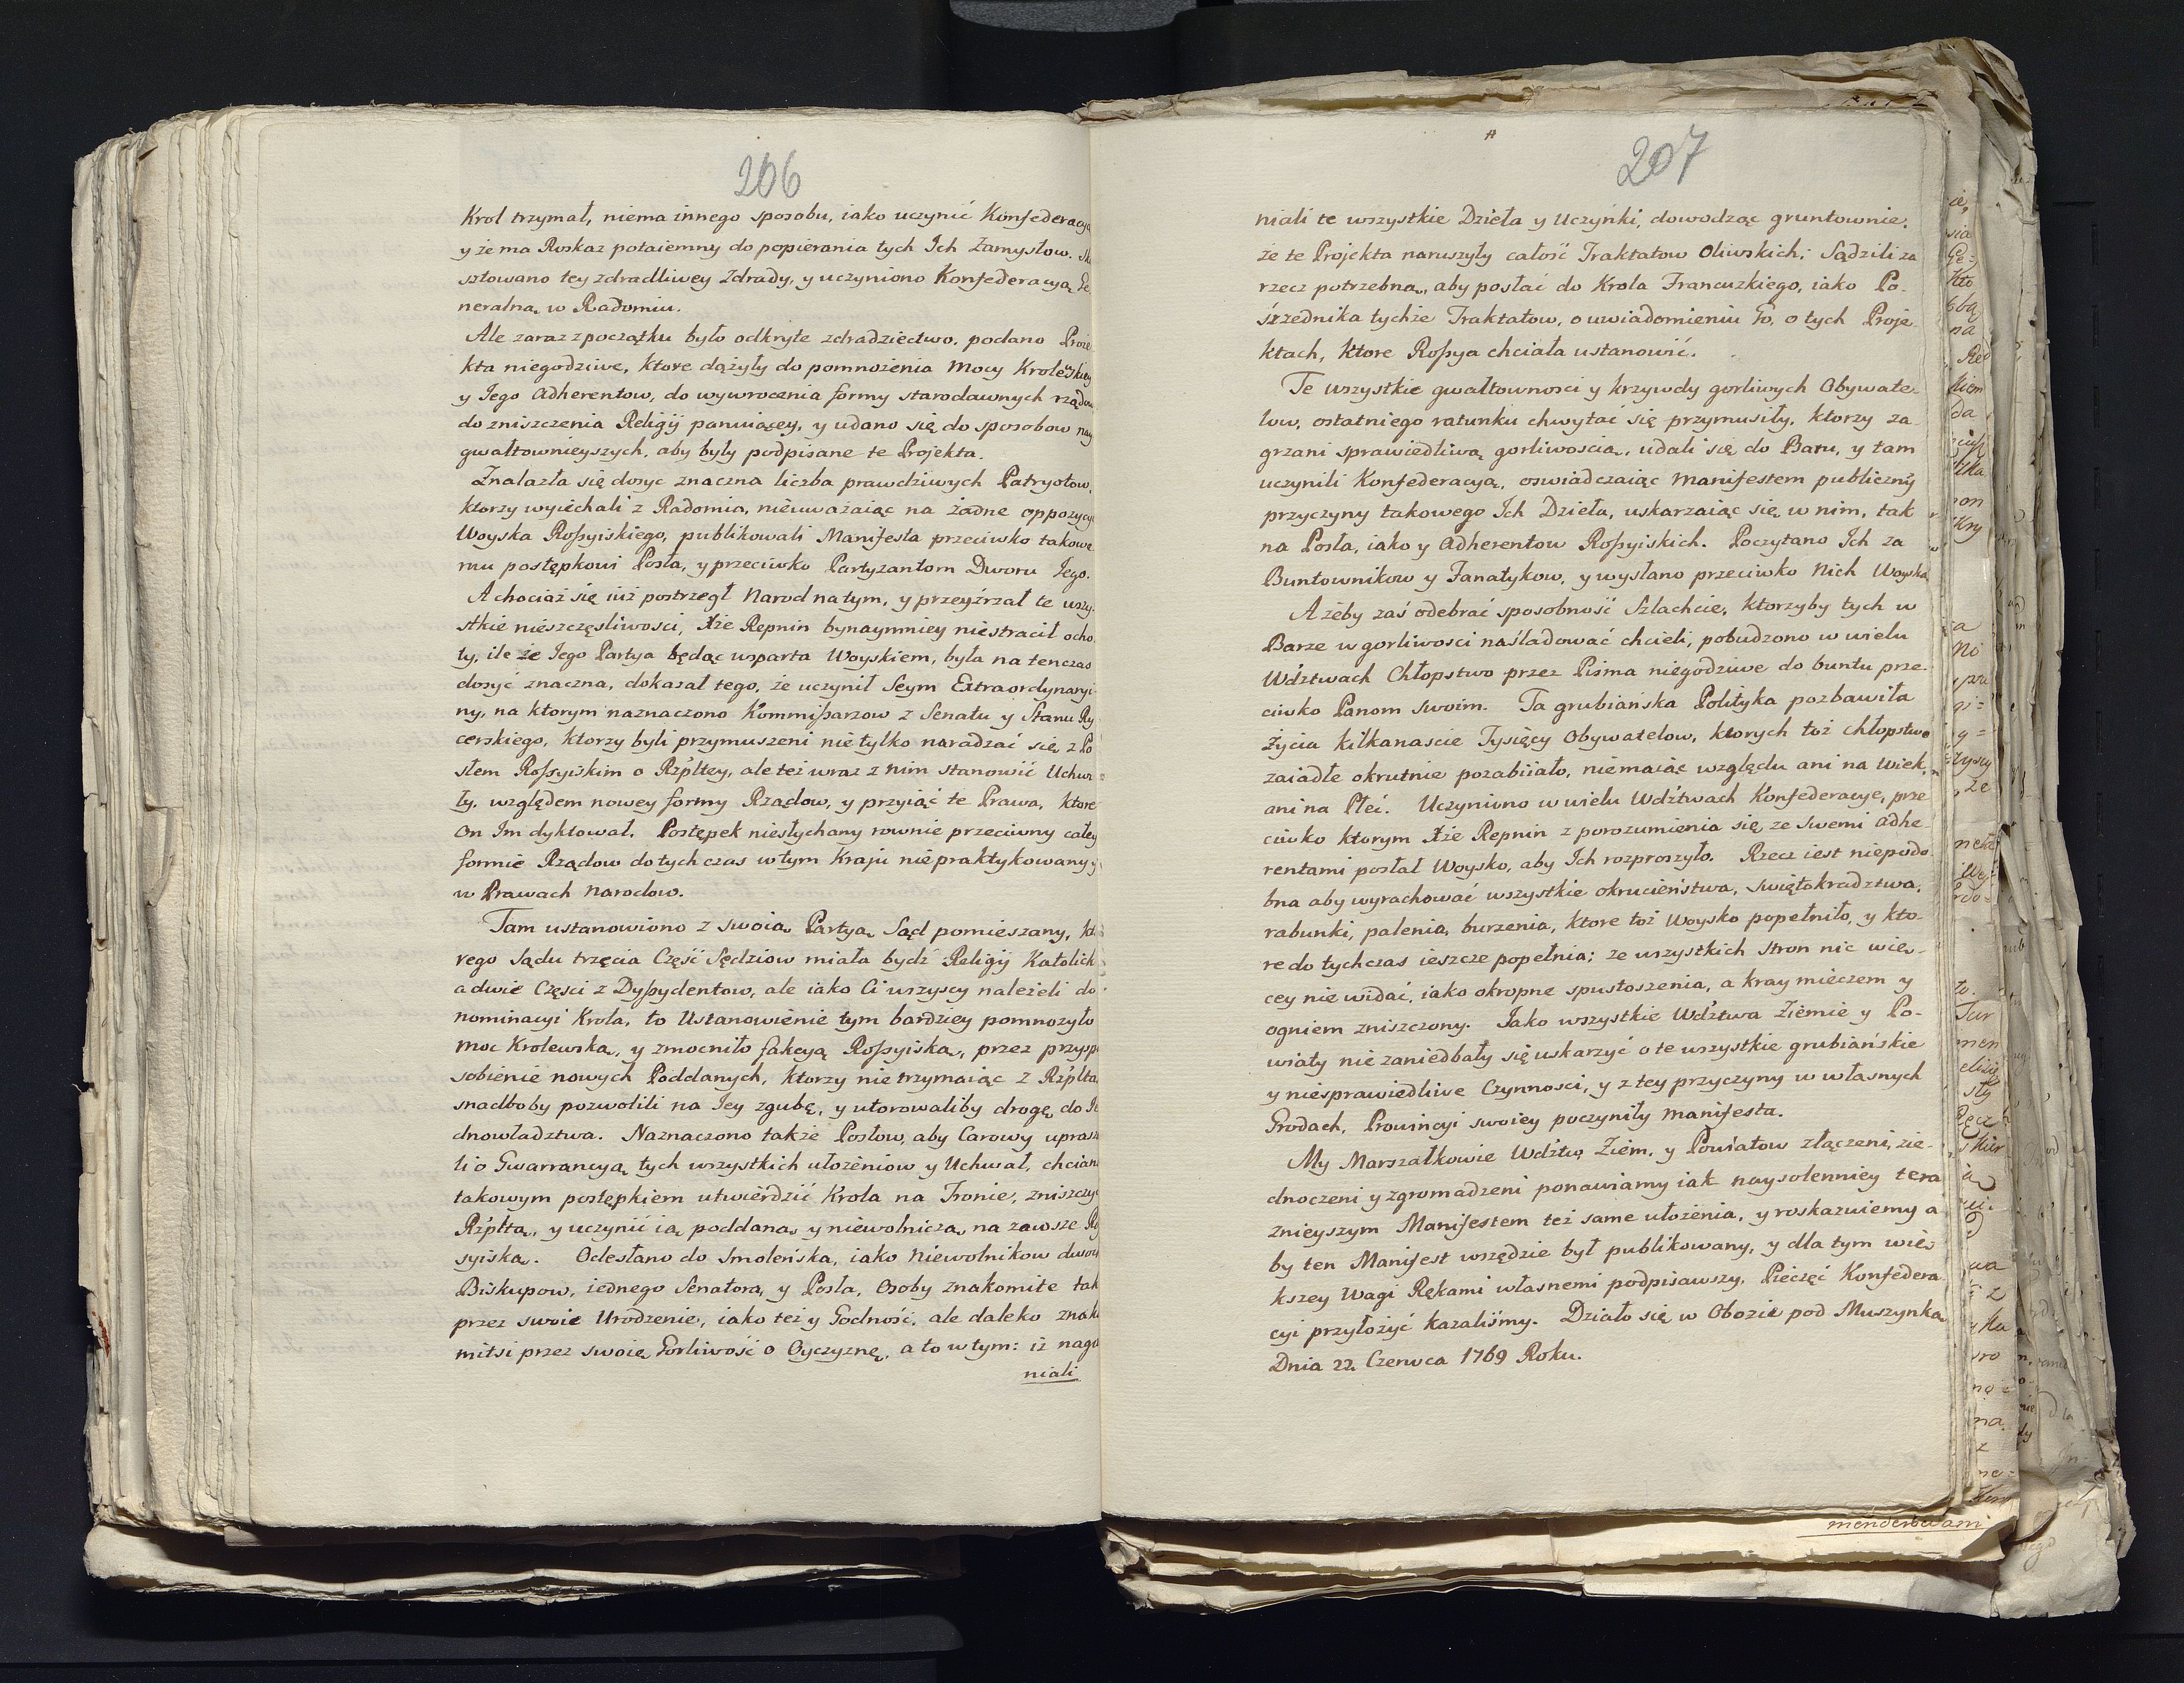 206
Krol trzymał, niema innego sposobu, iako uczynić Konfederacyą
y że ma Roskaz potaiemny do popierania tych Ich Zamysłow.
sztowano tey zdradliwey Zdrady, y uczyniono Konfederacyą Ge
neralną w Radomiu.
Ale zaraz z początku było odkryte zdradziectwo. podano Proie
kta niegodziwe, ktore dążyły do pomnożenia Mocy Krolewskiey
y Jego Adherentow, do wywrocenia formy starodawnych rządow
do zniszczenia Religij panuiącey, y udano się do sposobow nay
gwałtownieyszych, aby były podpisane te Projekta.
Znalazła się dosyc znaczna liczba prawdziwych Patryotow,
ktorzy wyiechali z Radomia, nieuważaiąc na żadne oppozycye
Woyska Roſsyiskiego, publikowali Manifesta przeciwko takowe
mu postępkowi Posła, y przeciwko Partyzantom Dworu Jego.
A chociaż się iuż postrzegł Narod na tym, y przeyźrzał te wszy
stkie nieszczęsliwosci, Xże Repnin bynaymniey niestracił ocho
ty, ile że Jego Partya będąc wsparta Woyskiem, była na tenczas
dosyć znaczna, dokazał tego, że uczynił Seym Extraordynaryi
ny, na ktorym naznaczono Kommiſsarzow z Senatu y Stanu Ry
cerskiego, ktorzy byli przymuszeni nie tylko naradzać się z Po
słem Roſsyiskim o Rzpltey, ale też wraz z nim stanowić Uchwa
ły, względem nowey formy Rządow, y przyiąć te Prawa, ktore
On Im dyktował. Postępek niesłychany rownie przeciwny całey
formie Rządow do tych czas w tym Kraju niepraktykowany y
w Prawach Narodow.
Tam ustanowiono z swoią Partyą Sąd pomieszany, kto
rego Sądu trzecia Część Sędziow miała bydź Religij Katolick
a dwie Częsci z Dyſsydentow, ale iako Ci wszyscy należeli do
nominacyi Krola, to Ustanowienie tym bardziey pomnożyło
moc Krolewską, y zmocniło fakcyą Roſsyiską, przez przyspo
sobienie nowych Poddanych, ktorzy nie trzymaiąc z Rzpltą
snadboby pozwolili na Jey zgubę, y utorowaliby drogę do Je
dnowładztwa. Naznaczono także Posłow, aby Carowy uprasza
li o Gwarrancyą tych wszystkich ułożeniow y Uchwał, chciano
takowym postępkiem utwierdzić Krola na Tronie, zniszczyć
Rzpltą, y uczynić ią poddaną y niewolniczą na zawsze Ro
syiską. Odesłano do Smoleńska, iako Niewolnikow dwoch
Biskupow, iednego Senatora, y Posła, Osoby znakomite tak
przez swoie Urodzenie, iako też y Godność, ale daleko znako
mitsi przez swoię Gorliwość o Oyczyznę, a to w tym: iż naga
niali
207
niali te wszystkie Dzieła y Uczynki, dowodząc gruntownie,
że te Projekta naruszyły całość Traktatow Oliwskich; Sądzili za
rzecz potrzebną, aby posłać do Krola Francuzkiego, iako Po-
śrzednika tychże Traktatow, o uwiadomieniu Go, o tych Proje-
ktach, ktore Roſsya chciała ustanowić.
Te wszystkie gwałtownosci y krzywdy gorliwych Obywate-
low, ostatniego ratunku chwytać się przymusiły, ktorzy za-
grzani sprawiedliwą gorliwoscią, udali się do Baru, y tam
uczynili Konfederacyą, oswiadczaiąc Manifestem publicznÿ
przyczyny takowego Ich Dzieła, uskarżaiąc się w nim, tak
na Posła, iako y Adherentow Roſsyiskich. Poczytano Ich za
Buntownikow y Fanatykow, y wysłano przeciwko Nich Woyska
A żeby zaś odebrać sposobność Szlachcie, ktorzyby tych w
Barze w gorliwosci naśladować chcieli, pobudzono w wielu
Wdztwach Chłopstwo przez Pisma niegodziwe do buntu prze-
ciwko Panom swoim. Ta grubiańska Polityka pozbawiła
życia kilkanascie Tysięcy Obywatelow, ktorych toż chłopstwo
zaiadłe okrutnie pozabiiało, niemaiąc względu ani na Wiek,
ani na Płeć. Uczyniono w wielu Wdztwach Konfederacye, prze
ciwko ktorym Xże Repnin z porozumienia się ze swemi Adhe-
rentami posłał Woysko, aby Ich rozproszyło. Rzecz iest niepodo
bna aby wyrachować wszystkie okrucieństwa, Swiętokradztwa,
rabunki, palenia, burzenia, ktore toż Woysko popełniło, y kto-
re do tychczas ieszcze popełnia; ze wszystkich Stron nic wię-
cey nie widać, iako okropne spustoszenia, a kray mieczem y
ogniem zniszczony. Jako wszystkie Wdztwa Ziemie y Po-
wiaty nie zaniedbały się uskarżyć o te wszystkie grubiańskie
y niesprawiedliwe Czynnosci, y z tey przyczyny w własnych
Grodach, Prowincyi swoiey poczyniły Manifesta.
My Marszałkowie Wdztw Ziem, y Powiatow złączeni, zie-
dnoczeni y zgromadzeni ponawiamy iak naysolenniey tera
znieyszym Manifestem też same ułożenia, y roskazuiemy a
by ten Manifest wszędzie był publikowany, y dla tym wię
kszey Wagi Rękami własnemi podpisawszy, Pieczęć Konfedera
cyi przyłożyć kazaliśmy. Działo się w Obozie pod Muszynką
Dnia 22. Czerwca 1769 Roku.